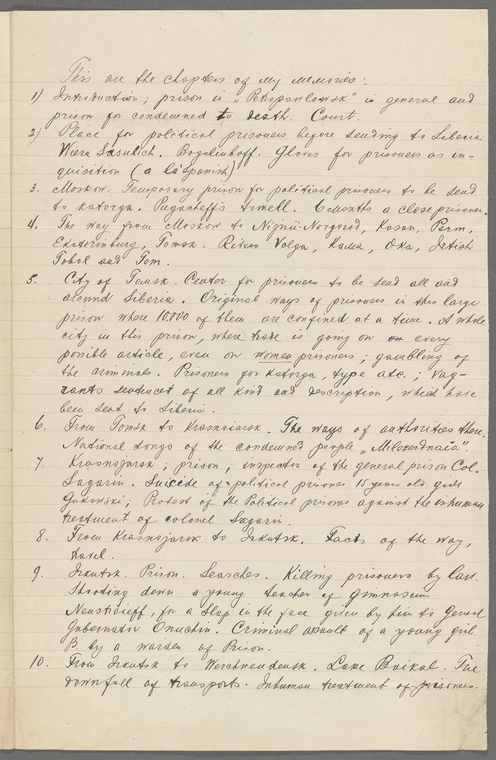 This are the chapters of my memories:
1) Introduction; prison in "Petropawlowsk" in general and
prison for condemned to death. Court.
2) Place for political prisoners before sending to Siberia
Wiera Sasulich. Bogoluboff. Gloves for prisoners as in-
quisition (a la spanish)
3. Moskow. Temporary prison for political prisoners to be send
to katorga. Pugacheff's towell. 6 months a close prisoner.
4. The way from Moskow to Nignii-Novgorod, Kasan, Perm,
Ekaterinburg, Tomsk. Rivers Volga, Kama, Oka, Irtich
Tobol and Tom.
5. City of Tomsk. Center for prisoners to be send all and
around Siberia. Original ways of prisoners in this large
prison where 10,000 of them are confined at a time. A whole
city in this prison, where trade is going on on every
posible article, even on women prisoners; gambling of
the criminals. Prisoners for katorga, type etc.; Vag-
rants sentenced of all kind and description, which have
been sent to Siberia.
6. From Tomsk to Krasnoiarsk. The ways of authorities there.
National songs of the condemned people "Miloserdnaia".
7. Krasnojarsk; prison; inspector of the general prison Col.
Gagarin. Suicide of a political prisoner 18 years old girl
Gukowski; Protest of the Political prisoners against the inhuman
treatment of colonel Gagarin.
8. From Krasnojarsk to Irkutsk. Facts of the way,
travel.
9. Irkutsk. Prison. Searches. Killing prisoners by law.
Shooting down a young teacher of gimnasium
Neustroieff, for a slap in the face given by him to General
Gubernator Anuchin. Criminal assault of a young girl
B. by a warden of Prison.
10. From Irkutsk to Werchneudensk. Lake Baikal. The
downfall of transports. Inhuman treatment of prisoners.